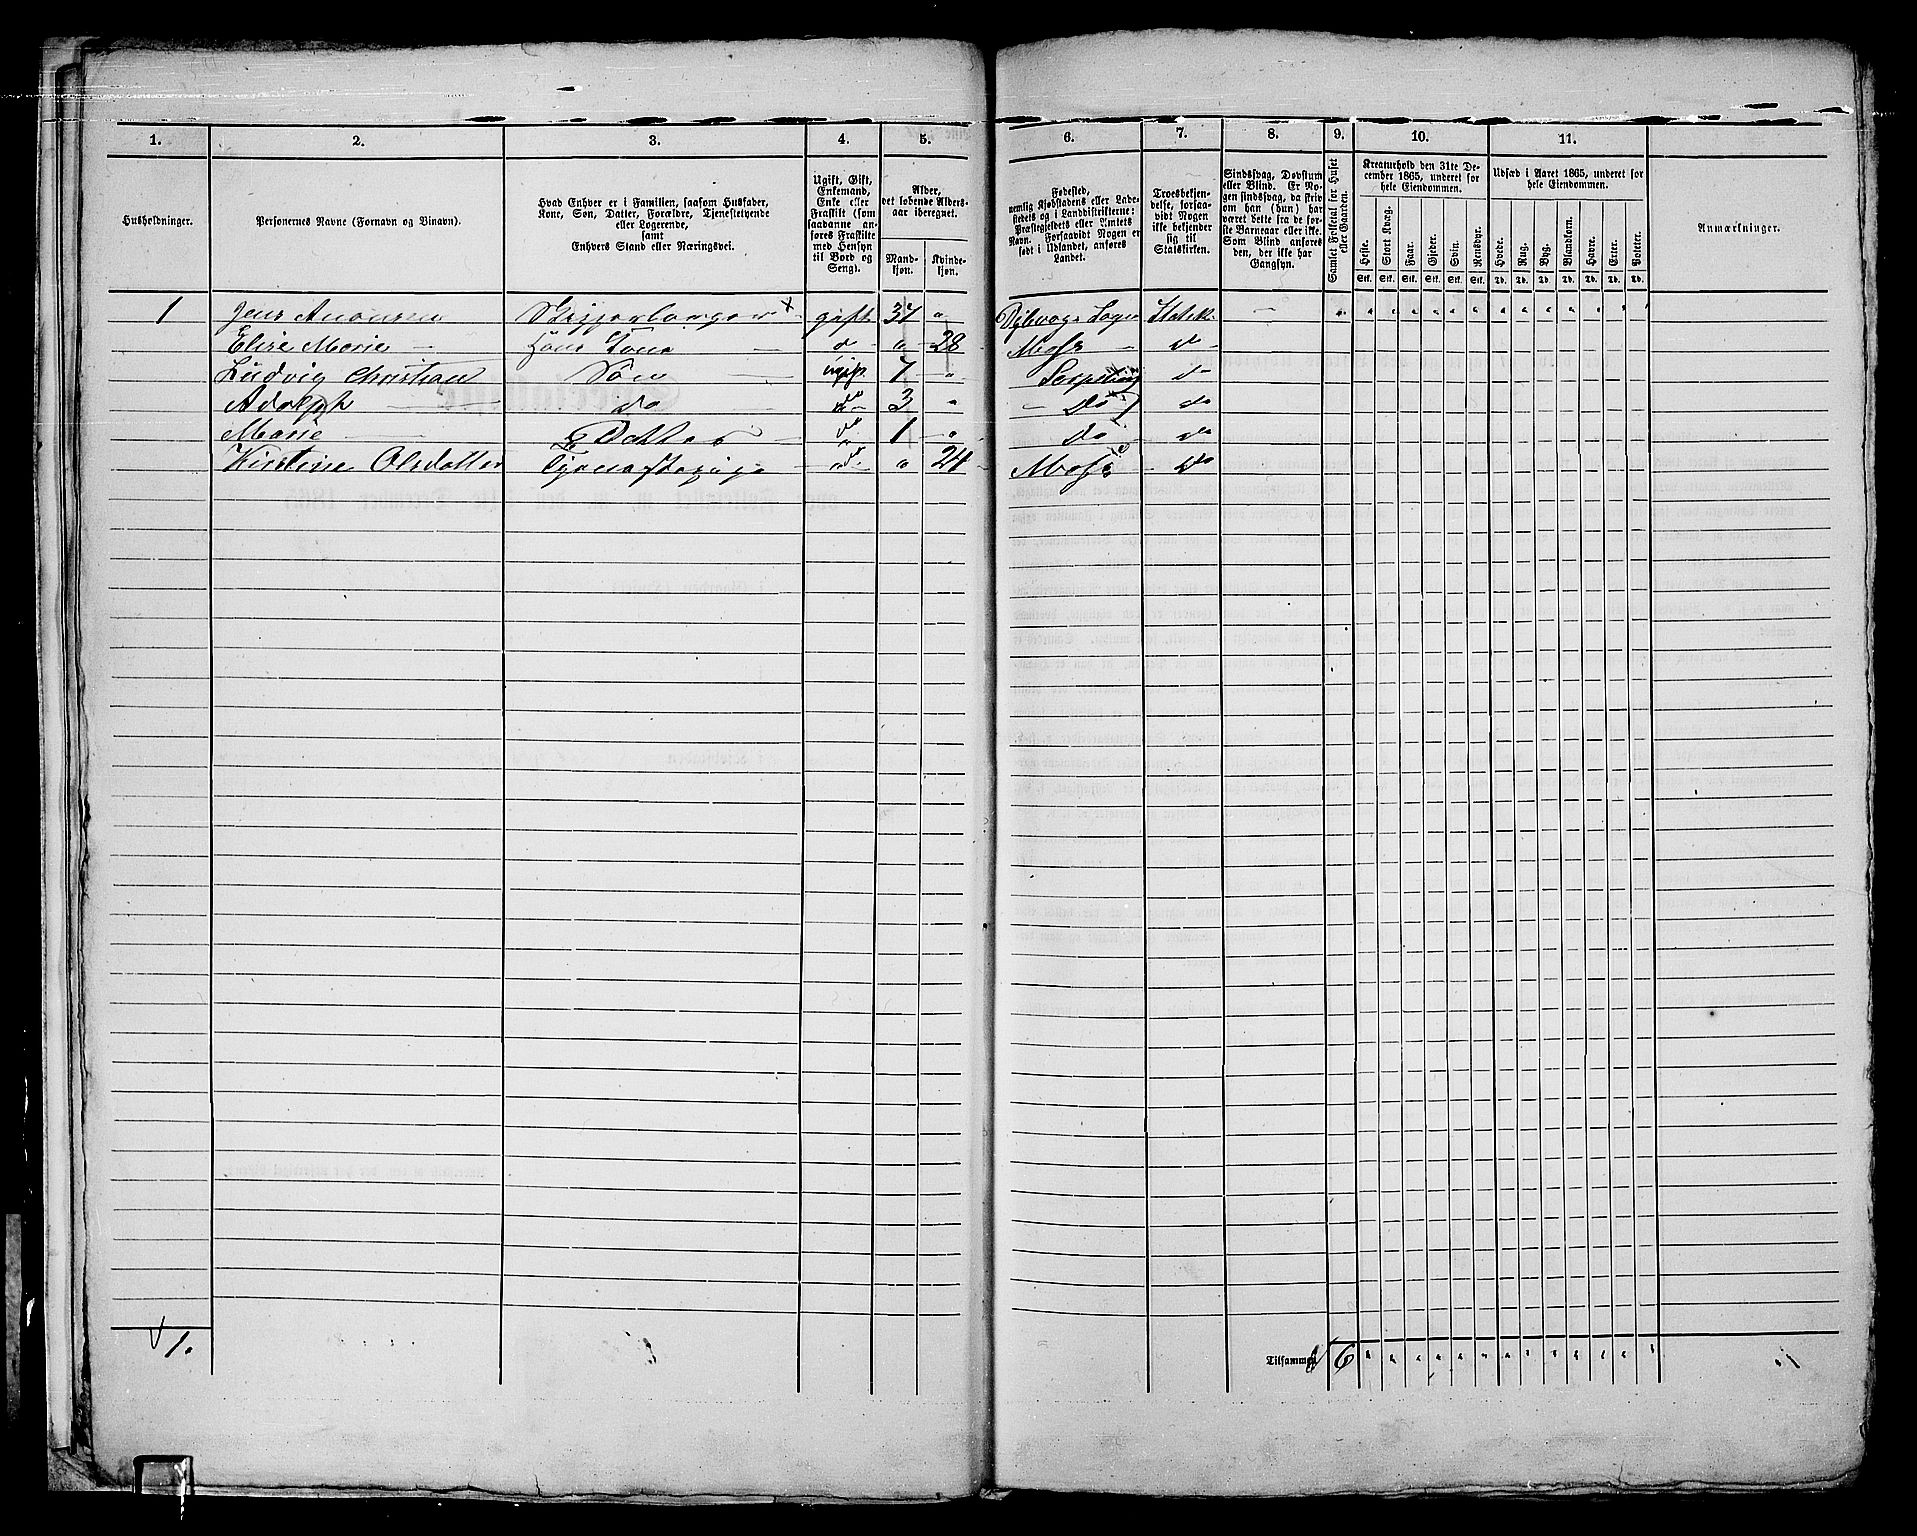 1. 2. 3. 4. 5. 6. 7. 8. 9. 10. 11.
Husholdninger.
Personernes Navne (Fornavn og Binavn).
Hvad Enhver er i Familien, saasom Husfader,
Kone, Søn, Datter, Forældre, Tjenestetyende
eller Logerende,
samt
Enhvers Stand eller Næringsvei.
Ugift, Gift,
Enkemand,
Enke eller
Fraskilt (som
saadanne an-
føres Fraskilte
med Hensyn
til Bord og
Seng).
Alder,
det løbende Alders-
aar iberegnet.
Mand-
kjøn.
Kvinde-
kjøn.
Fødested,
nemlig Kjøbstadens eller Lade-
stedets og i Landdistrikterne:
Præstegjeldets eller Amtets
Navn. Forsaavidt Nogen er
født i Udlandet, anføres
Landet.
Troesbekjen-
delse, forsaa-
vidt Nogen
ikke bekjender
sig til
Statskirken.
Sindssvag, Døvstum
eller Blind. Er No-
gen sindssvag, da skriv
om han (hun) har
været dette fra de før-
ste Barneaar eller ikke.
Som Blind anføres
den, der ikke har
Gangsyn.
Samlet Folketal for Huset
eller Gaarden.
Kreaturhold den 31te De-
cember 1865, underet for
hele Eiendommen.
Heste. Stort Kvæg. Faar. Gjeder. Svin. Rensdyr.
Stk. Stk. Stk. Stk. Stk. Stk.
Udsæd i Aaret 1865, underet for
hele Eiendommen.
Hvede. Rug. Byg. Blandkorn. Havre. Erter. Poteter.
Td. Td. Td. Td. Td. Td. Td.
Anmærkninger.
1 Jens gift 37 "
Elise Marie — Hans Kone — d " 28 Moss — do
Ludvig Christian Søn — ugift 7 " do
Adolph — do — do 3 " — Do do
Marie — Datter — do 1 " Do do
Kirstine Olsdatter Tjenestepige — do " 24 Moss — Do
1.
Tilsammen 6